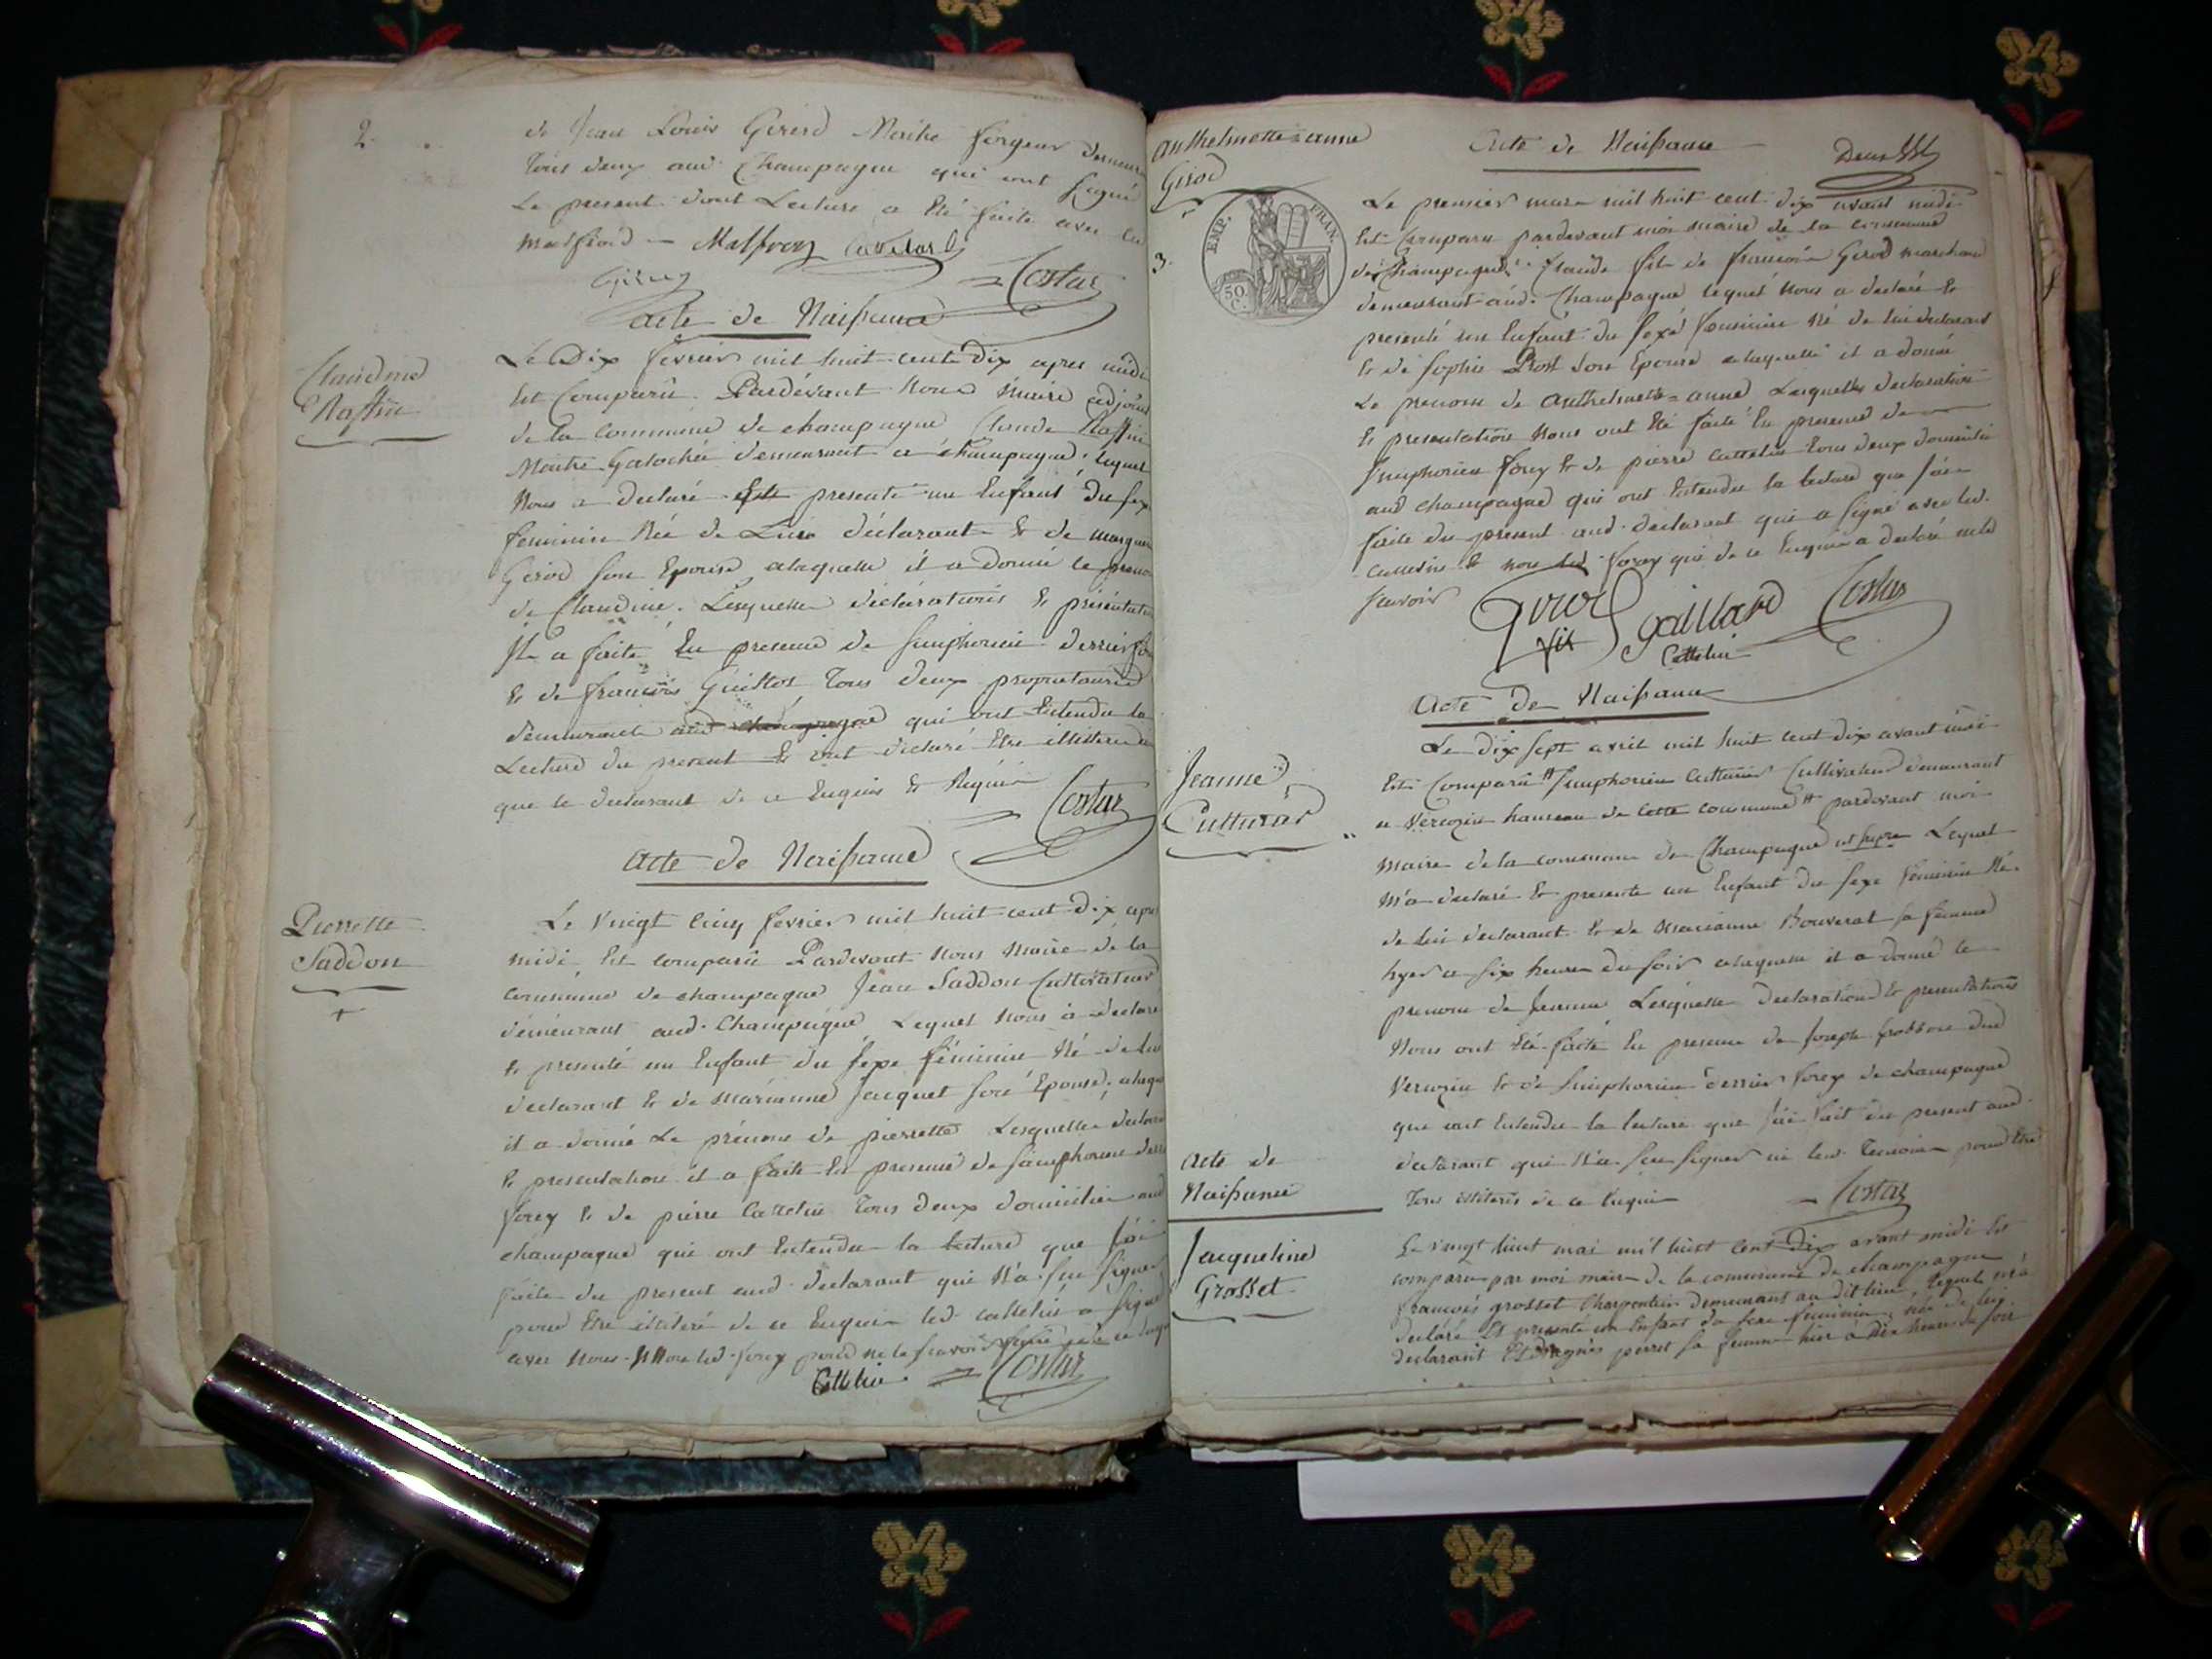 2.
de Jean Louis Gerard Maitre forgeur
tous deux aud. Champagne qui ont signé
Le present dont Lecture a été faite avec led
Malfroid Malfroy
Costaz
acte de Naissance
Claudine
Raffin
Le Dix fevrier mil huit cent dix apres midi
Est Comparû Pardevant Nous Maire adjoint
de la commune de champagne Claude Raffin
Maitre Galochié demeurant a champagne, lequel
Nous a declaré presenté un Enfant du sex
feminin Née de Lui declarant & de
Girod son Epouse a laquelle il a donné le
de Claudine. Lesquelles déclarations & presentation
Il a faite En presence de Simphorien derrier
& de francois Guillot tous deux proprietaires
demeurant aud champagne qui ont Entendu la
Lecture du present & ont declaré Etre
que le declarant de ce Enquis & Requis
Costaz
acte de Naissance
Pierrette
Saddon
+
Le vingt cinq fevrier mil huit cent dix apres
midi Est comparû Pardevant Nous Maire de la
commune de champagne Jean Saddon Cultivateur
demeurant aud. Champagne Lequel Nous à declaré
& presenté un Enfant du sexe féminin Né de lui
declarant & de Marianne Jacquet son Epouse, a laque
il a donné Le prénom de pierrette Lesquelles
& presentation il a faite En presence de Simphorien
forey & de pierre Cattelin tous deux domiciliés aud
champagne qui ont Entendu la lecture que J'ai
faite du present aud. declarant qui N'a su signer
pour Etre illitéré de ce Enquis led. Cattelin a signé
avec Nous. Non led. forey pour ne le savoir
Cattelin Costaz
anthelmette=anne
Girod
3.
EMP. FRAN.
50 C.
Acte de Naissance
Le premier mars mil huit cent dix avant midi
Est Comparu pardevant moi maire de la commune
de Champagne Claude fils de francois Girod marchand
demeurant aud. Champagne lequel Nous a declaré &
presenté un Enfant du sexe feminin Né de lui declarant
& de Sophie Prost son Epouse a laquelle il a donné
Le prenom de anthelmette=anne Lesquelles declaration
& presentation Nous ont Eté faite En presence de
Simphorien forey & de pierre Cattelin tous deux domicilié
aud champagne qui ont Entendu la lecture que J'ai
faite du present aud. declarant qui a signé avec led.
Cattelin & non led. forey qui de ce Enquis a declaré ne le
savoir
Girod Gaillard Costaz
Cattelin
Acte De Naissance
Jeanne
Cutturat
Le dix sept avril mil huit cent dix avant midi
Est Comparû Simphorien Cultivateur demeurant
a Vercozin hameau de cette commune pardevant moi
maire de la commune de Champagne Lequel
M'a declaré & presenté un Enfant du sexe feminin Né
de lui declarant & de Marianne Bouverat sa femme
hyer a six heures du soir a laquelle il a donné le
prenom de Jeanne Lesquelles declaration & presentations
Nous ont Eté faite En presence de Joseph
Vercozin & de Simphorien derrier forey de champagne
que ont Entendu la lecture que J'ai fait du present aud.
declarant qui N'a su signer ni les Temoins pour Etre
Tous illiterés de ce Enquis Costaz
Acte de
Naissance
Jacqueline
Grosset
Le vingt huit mai mil huit cent dix avant midi Est
comparu par moi maire de la commune de champagne
francois grosset Charpentier demeurant au dit lieu, lequel m'a
declaré Et presenté un Enfant du sexe feminin, née de lui
declarant Et d'agnès perret sa femme hier à dix heures du soir